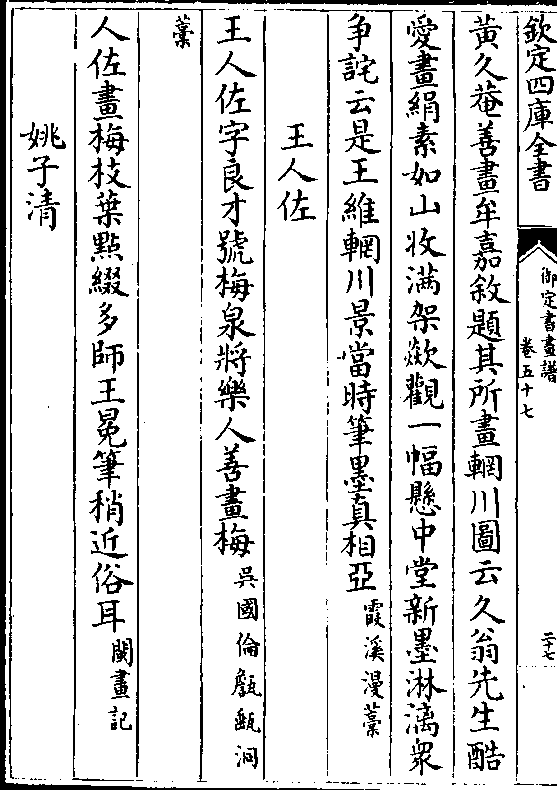 欽定四庫全書
御定書畫譜
卷五十七
二十七
黃久菴善畫牟嘉敘題其所畫輞川圖云久翁先生酷
愛畫絹素如山收滿架歘觀一幅懸中堂新墨淋漓衆
争詫云是王維輞川景當時筆墨真相亞霞溪漫藁
王人佐
王人佐字良才號梅泉將樂人善畫梅吳國倫甔甀洞
藁
人佐畫梅枝葉點綴多師王冕筆稍近俗耳閩畫記
姚子清